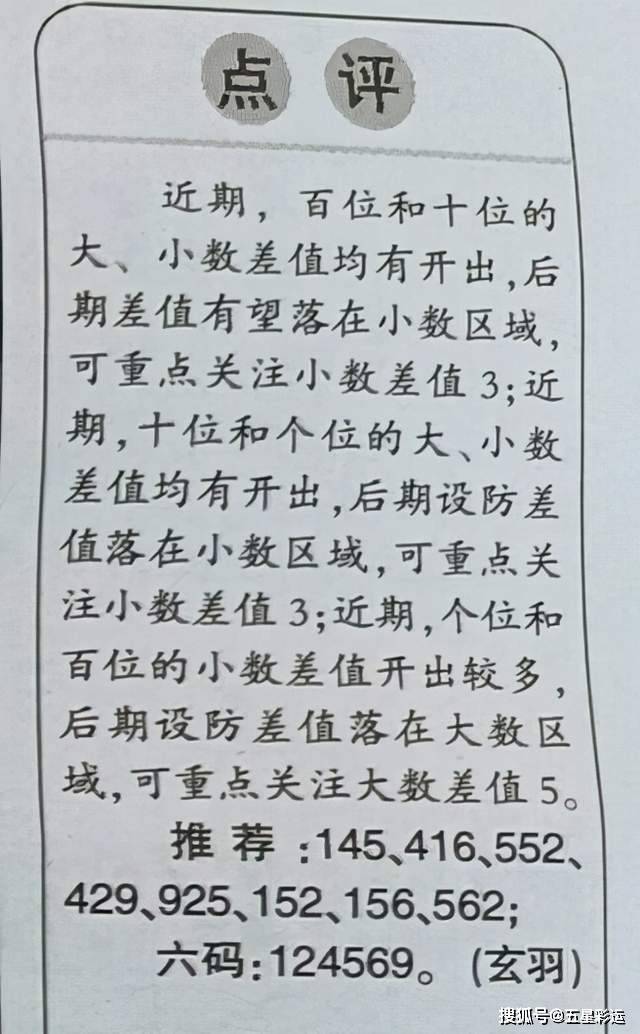 点 评
近期，百位和十位的
大、小数差值均有开出，后
期差值有望落在小数区域，
可重点关注小数差值3；近
期，十位和个位的大、小数
差值均有开出，后期设防差
值落在小数区域，可重点关
注小数差值3；近期，个位和
百位的小数差值开出较多，
后期设防差值落在大数区
域，可重点关注大数差值5。
推荐：145、416、552、
429、925、152、156、562；
六码：124569。（玄羽）
搜狐号@五星彩运